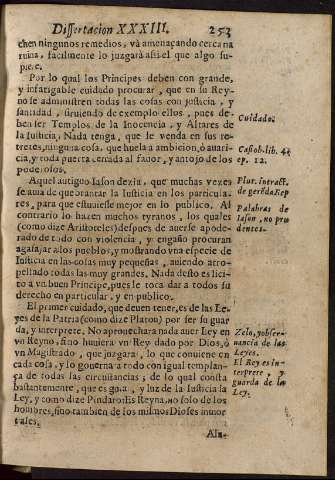 Dissertacion XXXIII. 253
chen ningunos remedios, và amenaçando cercana
ruina, facilmente lo juzgará assi el que algo su-
piere.
Por lo qual los Principes deben con grande,
y infatigable cuidado procurar, que en su Rey-
no se administren todas las cosas con justicia, y
santidad, siruiendo de exemplo ellos, pues de-
ben ser Templos de la Inocencia, y Altares de
la Justicia, Nada tenga, que le venda en sus re-
tretes, ninguna cosa que huela a ambicion, ò auari-
cia, y toda puerta cerrada al fauor, y antojo de los
poderosos.
Cuidado.
Casiod. lib. 4.
ep. 12.
Aquel antiguo Iason dezia, que muchas vezes
se auia de quebrantar la Iusticia en los particula-
res, para que estuuiesse mejor en lo publico. Al
contrario lo hazen muchos tyranos, los quales
(como dize Aristoteles) despues de auerse apode-
rado de todo con violencia, y engaño procuran
agassajar a los pueblos, y mostrando vna especie de
Iusticia en las cosas muy pequeñas, auiendo atro-
pellado todas las muy grandes. Nada desto es lici-
to a vn buen Principe, pues le toca dar a todos su
derecho en particular, y en publico.
Plur. in tract.
de gerēda. Rep
Palabras de
Iason, no pru
dentes.
El primer cuidado, que deuen tener, es de las Le-
yes de la Patria (como dize Platon) por ser su guar-
da, y interprete. No aprouechara nada auer Ley en
vn Reyno, sino huuiera vn Rey dado por Dios, ò
vn Magistrado, que juzgara, lo que conuiene en
cada cosa, y lo governara todo con igual templan-
ça de todas las circunstancias; de lo qual consta
bastantemente, que es guia, y luz de la Iusticia la
Ley, y como dize Pindaro: Es Reyna, no solo de los
hombres, sino tambien de los mismos Dioses inmor
tales.
Zelo, y obser-
uancia de las
Leyes.
El Rey es in-
terprete, y
guarda de la
Ley.
Ala-